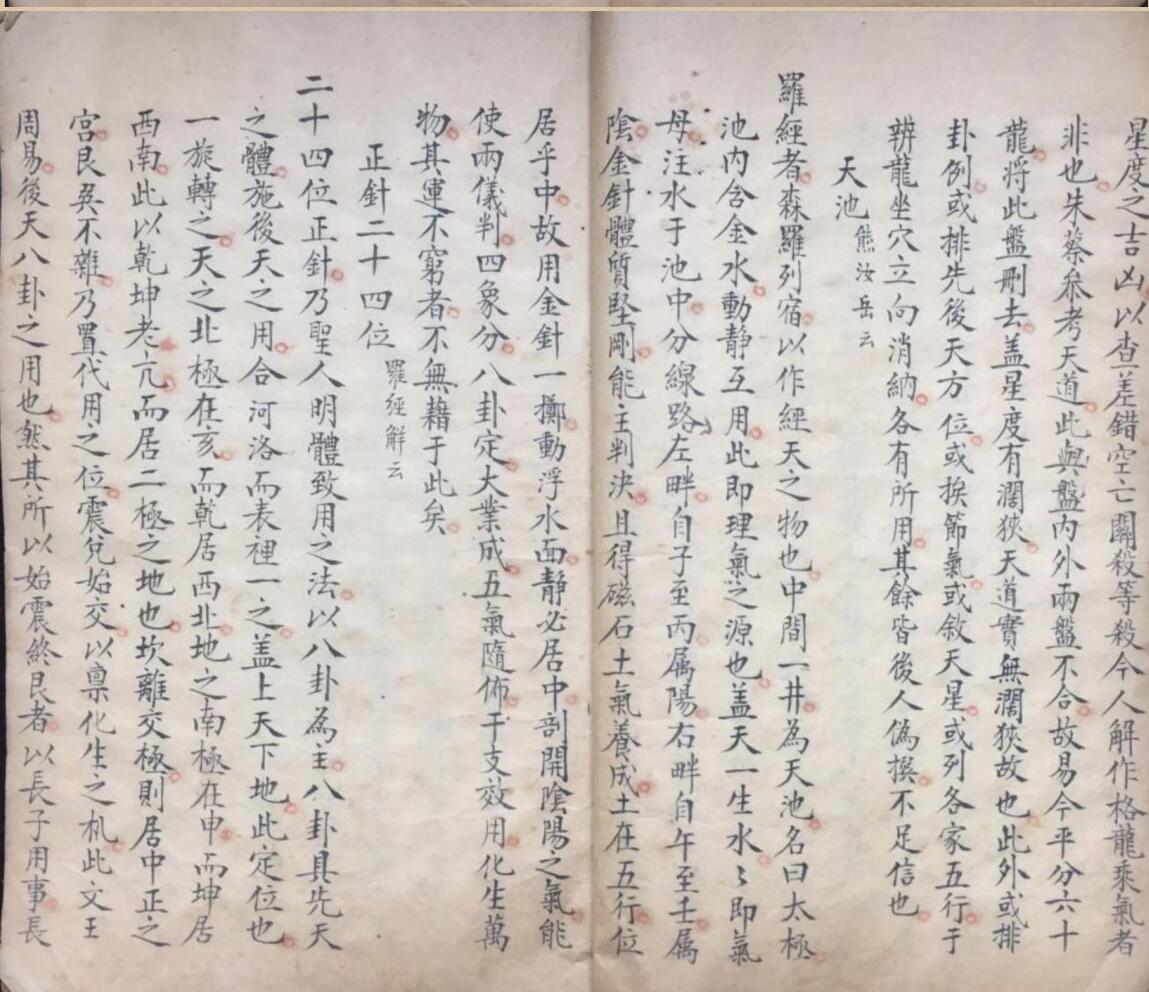 星度之吉凶以查差錯空亡關殺等殺今人解作格龍乘氣者
非也朱蔡叅考天道此與盤內外兩盤不合故易今平分六十
龍將此盤刪去盖星度有濶狹天道實無濶狹故也此外或排
卦例或排先後天方位或挨節氣或敘天星或列各家五行于
辨龍坐穴立向消納各有所用其餘皆後人偽撰不足信也
天池 熊汝岳云
羅經者森羅列宿以作經天之物也中間一井為天池名曰太極
池內含金水動靜互用此即理氣之源也盖天一生水〻即氣
母注水于池中分線路左畔自子至丙属陽右畔自午至壬属
陰金針體質堅剛能主判決且得磁石土氣養成土在五行位
居乎中故用金針一擲動浮水面靜必居中剖開陰陽之氣能
使兩儀判四象分八卦定大業成五氣隨佈干支效用化生萬
物其運不窮者不無藉于此矣
正針二十四位 羅經解云
二十四位正針乃聖人明體致用之法以八卦為主八卦具先天
之體施後天之用合河洛而表裡一之盖上天下地此定位也
一旋轉之天之北極在亥而乾居西北地之南極在申而坤居
西南此以乾坤老亢而居二極之地也坎離交極則居中正之
宮艮巽不雜乃置代用之位震兌始交以禀化生之机此文王
周易後天八卦之用也然其所以始震終艮者以長子用事長